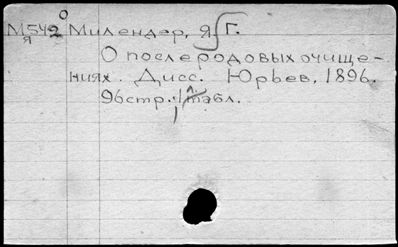 О
М542 Милендер, Я. Г.
я
О послеродовых очище-
ниях. Дисс. Юрьев, 1896.
96 стр. 1 табл.